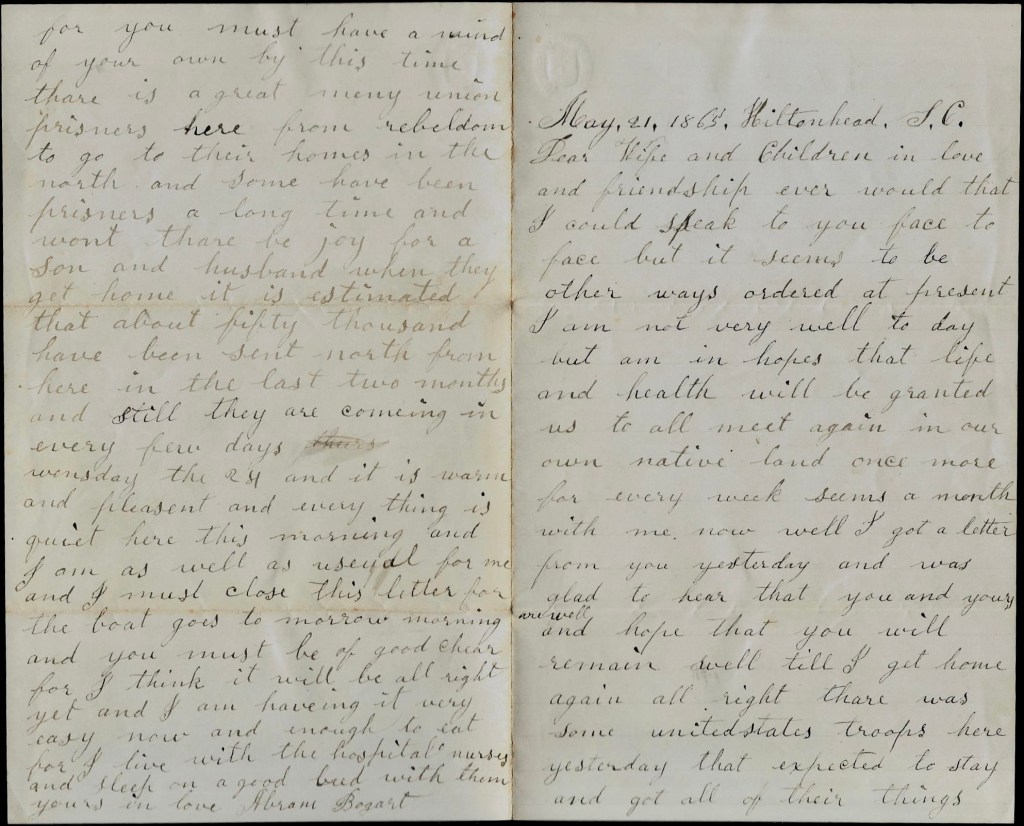 May, 21, 1865, Hiltonhead, S, C.
Dear Wife and Children in love
and friendship ever would that
I could speak to you face to
face but it seems to be
other ways ordered at present
I am not very well to day
but am in hopes that life
and health will be granted
us to all meet again in our
own native land once more
for every week seems a month
with me. now well I got a letter
from you yesterday and was
glad to hear that you and yours
are well
and hope that you will
remain well till I get home
again all right thare was
some unitedstates troops here
yesterday that expected to stay
and got all of their things
for you must have a mind
of your own by this time
thare is a great meny union
prisners here from rebeldom
to go to their homes in the
north and some have been
prisners a long time and
wont thare be joy for a
son and husband when they
get home it is estimated
that about fifty thousand
have been sent north from
here in the last two months
and still they are comeing in
every few days
wensday the 24 and it is warm
and pleasent and every thing is
quiet here this morning and
I am as well as useual for me
and I must close this letter for
the boat goes to morrow morning
and you must be of good chear
for I think it will be all right
yet and I am haveing it very
easy now and enough to eat
for I live with the hospital nurses
and sleep on a good bed with them
yours in love Abram Bogart